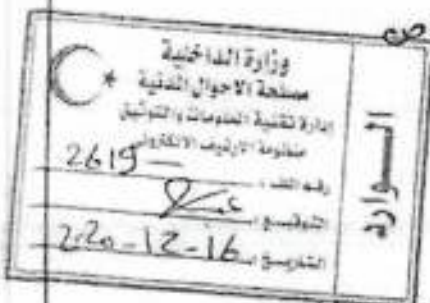 وزارة الداخلية
مصلحة الاحوال المدنية
إدارة تقنية المعلومات والتوثيق
منظومة الارشيف الالكتروني
رقم الملف : 2619
التوقيع :
التاريخ : 2020-12-16
الـــوارد